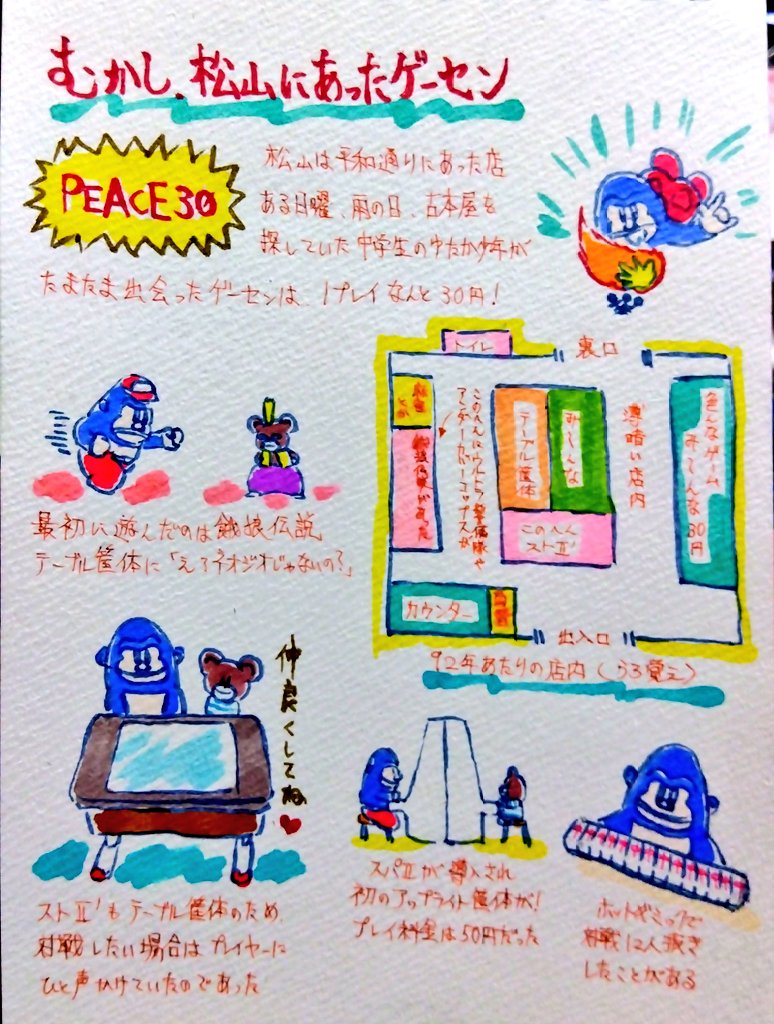 むかし、松山にあったゲーセン
PEACE30
松山は平和通りにあった店
ある日曜、雨の日、古本屋を
探していた中学生のゆたか少年が
たまたま出会ったゲーセンは、1プレイなんと30円!
最初に遊んだのは餓狼伝説
テーブル筐体に「えっネオジオじゃないの?」
トイレ
裏口
麻雀
とか
餓狼伝説があった
このへんにウルトラ警備隊や
アンダーカバーコップスが
テーブル筐体
みーんな
薄暗い店内
色んなゲーム
みーんな30円
この人人
ストⅡ'
カウンター
両替
出入口
92年あたりの店内(うろ覚え)
仲良くしてね
ストⅡ'もテーブル筐体のため、
対戦したい場合はプレイヤーに
ひと声かけていたのであった
スパⅡが導入され
初のアップライト筐体が!
プレイ料金は50円だった
ホットギミックで
対戦12人抜き
したことがある